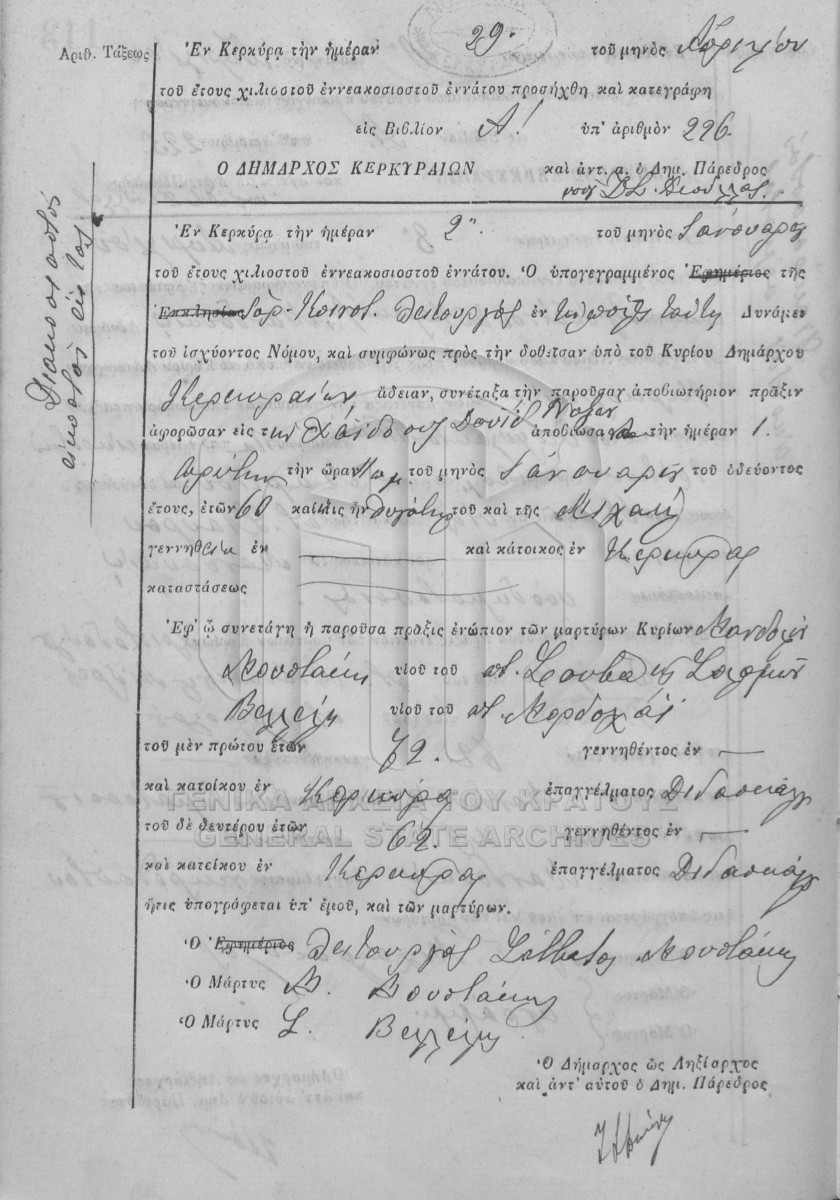 Ἀριθ. Τάξεως
Διακόσιοστὸς
εἰκοστὸς ἕκτος
Ἐν Κερκύρᾳ τὴν ἡμέραν 29. τοῦ μηνὸς Ἀπριλίου
τοῦ ἔτους χιλιοστοῦ ἐννεακοσιοστοῦ ἐννάτου προσήχθη καὶ κατεγράφη
εἰς Βιβλίον Α! ὑπ' ἀριθμὸν 226.
Ο ΔΗΜΑΡΧΟΣ ΚΕΡΚΥΡΑΙΩΝ καὶ ἀντ. α. ὁ Δημ. Πάρεδρος
Ἐν Κερκύρᾳ τὴν ἡμέραν 2α τοῦ μηνὸς Ἰανουαρίου
τοῦ ἔτους χιλιοστοῦ ἐννεακοσιοστοῦ ἐννάτου. Ὁ ὑπογεγραμμένος Ἐφημέριος τῆς
Ἐκκλησίας Ἰσρ. Κοινοτ. Λειτουργὸς ἐν τῇ πόλει ταύτῃ Δυνάμει
τοῦ ἰσχύοντος Νόμου, καὶ συμφώνως πρὸς τὴν δοθεῖσαν ὑπὸ τοῦ Κυρίου Δημάρχου
Κερκυραίων ἄδειαν, συνέταξα τὴν παροῦσαν ἀποβιωτήριον πρᾶξιν
ἀφορῶσαν εἰς τὴν Χάϊδω συζ Δαυὶδ ἀποβιώσασαν τὴν ἡμέραν 1.
πρώτην τὴν ὥραν πμ. τοῦ μηνὸς Ἰανουαρίου τοῦ ὁδεύοντος
ἔτους, ἐτῶν 60 καὶ ἥτις ἦν θυγάτηρ τοῦ καὶ τῆς Μιχαὴλ
γεννηθεῖσα ἐν καὶ κάτοικος ἐν Κερκύρᾳ
καταστάσεως
Ἐφ' ᾧ συνετάγη ἡ παροῦσα πρᾶξις ἐνώπιον τῶν μαρτύρων Κυρίων Μανδολὶν
Μουστάκη υἱοῦ τοῦ ποτ. καὶ Σολομὼν
Βελλέλη υἱοῦ τοῦ ποτ Μορδοχάϊ
τοῦ μὲν πρώτου ἐτῶν 72. γεννηθέντος ἐν —
καὶ κατοίκου ἐν Κερκύρᾳ ἐπαγγέλματος Διδασκάλου
τοῦ δὲ δευτέρου ἐτῶν 62. γεννηθέντος ἐν —
καὶ κατοίκου ἐν Κερκύρᾳ ἐπαγγέλματος Διδασκάλου
ἥτις ὑπογράφεται ὑπ' ἐμοῦ, καὶ τῶν μαρτύρων.
Ὁ Ἐφημέριος Λειτουργὸς Σάββατος Μουστάκης
Ὁ Μάρτυς Μ. Μουστάκης
Ὁ Μάρτυς Σ. Βελλέλης
Ὁ Δήμαρχος ὡς Ληξίαρχος
καὶ ἀντ' αὐτοῦ ὁ Δημ. Πάρεδρος
ΓΕΝΙΚΑ ΑΡΧΕΙΑ ΤΟΥ ΚΡΑΤΟΥΣ
GENERAL STATE ARCHIVES